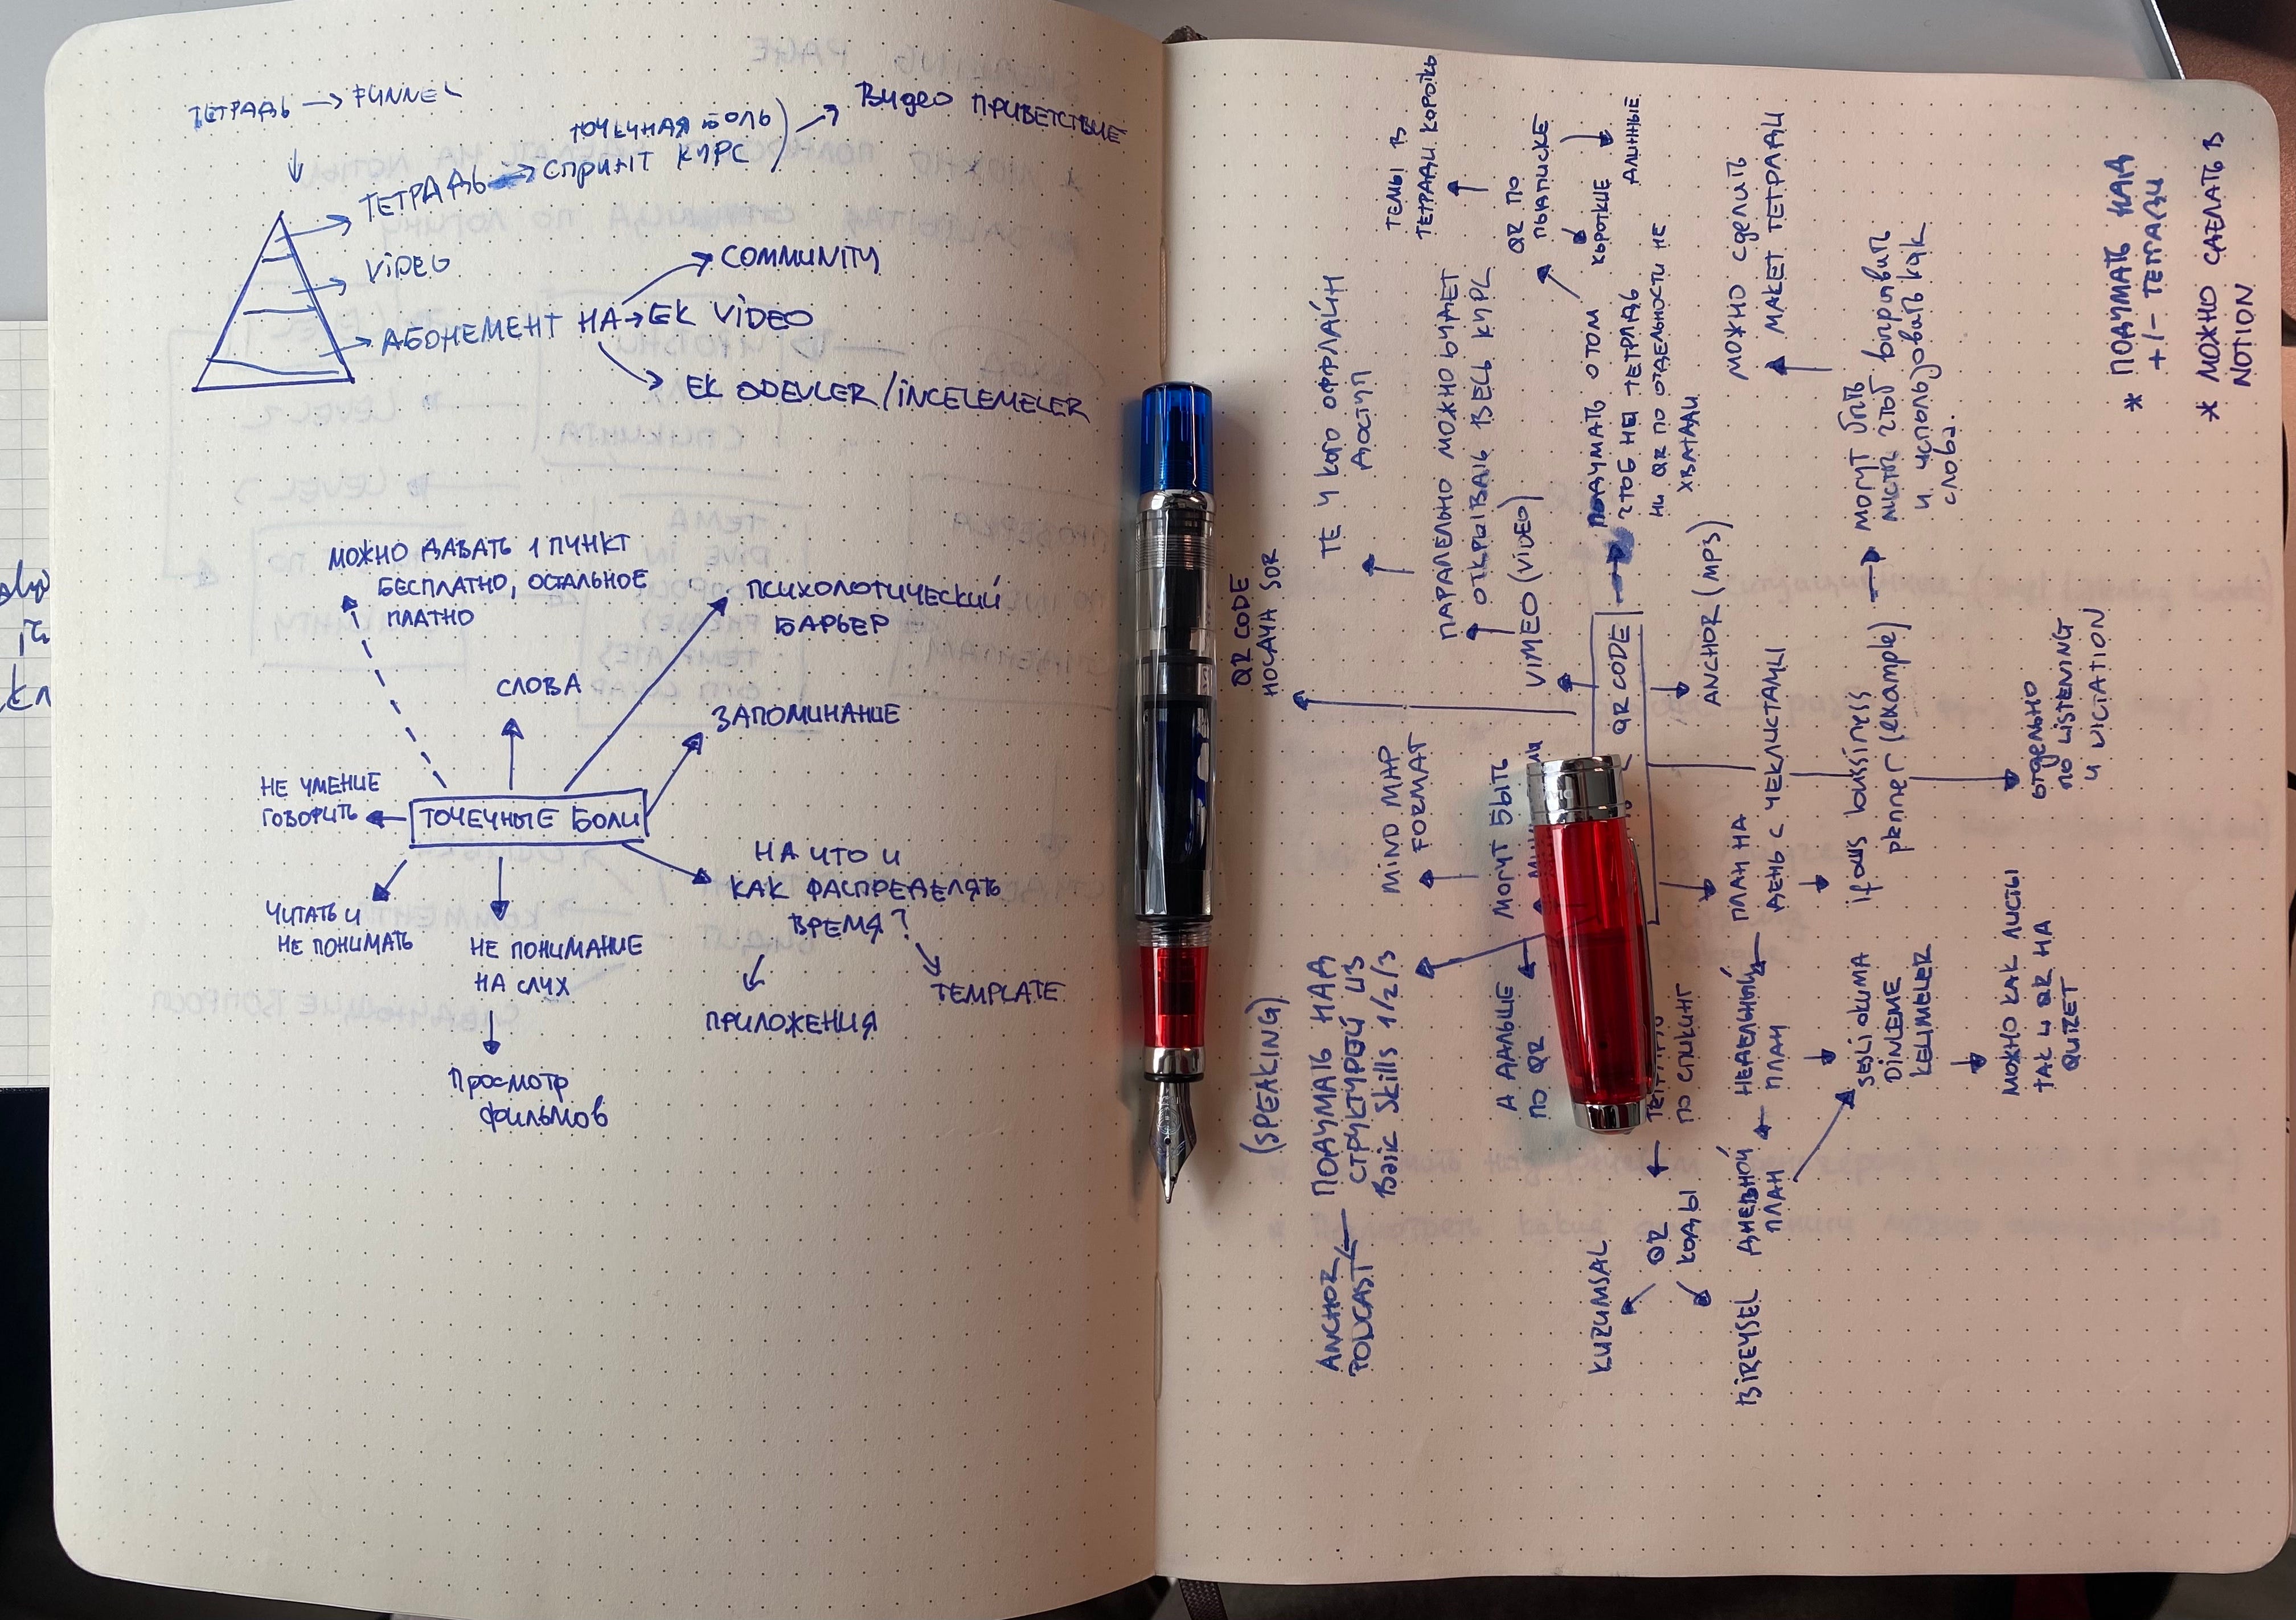 ТЕТРАДЬ → FUNNEL
ТЕТРАДЬ → СПРИНТ КУРС
ТОЧЕЧНАЯ БОЛЬ
ВИДЕО ПРИВЕТСТВИЕ
VİDEO
АБОНЕМЕНТ НА → EK VİDEO
COMMUNITY
EK ODEVLER / İNCELEMELER
МОЖНО ДАВАТЬ 1 ПУНКТ
БЕСПЛАТНО, ОСТАЛЬНОЕ
ПЛАТНО
ПСИХОЛОГИЧЕСКИЙ
БАРЬЕР
СЛОВА
ЗАПОМИНАНИЕ
НЕ УМЕНИЕ
ГОВОРИТЬ
ТОЧЕЧНЫЕ БОЛИ
НА ЧТО И
КАК РАСПРЕДЕЛЯТЬ
ВРЕМЯ?
ЧИТАТЬ И
НЕ ПОНИМАТЬ
НЕ ПОНИМАНИЕ
НА СЛУХ
TEMPLATE
ПРИЛОЖЕНИЯ
Просмотр
фильмов
QR CODE
HOCAYA SOR
(SPEAKING)
ТЕ У КОГО ОФФЛАЙН
ДОСТУП
ТЕМЫ В
ТЕТРАДИ
ПАРАЛЕЛЬНО МОЖНО БУДЕТ
ОТКРЫВАТЬ ВЕСЬ КУРС
MIND MAP
FORMAT
ПОДУМАТЬ НАД
СТРУКТУРОЙ ИЗ
Basic Skills 1/2/3
ANCHOR
PODCAST
QR ПО
ПЫАПИСКЕ
КОРОТКИЕ
ДЛИННЫЕ
VIMEO (VİDEO)
МОГУТ БЫТЬ
А ДАЛЬШЕ
ПО QR
ПОДУМАТЬ О ТОМ
ЧТОБ НЕ ТЕТРАДЬ
НИ QR ПО ОТДЕЛЬНОСТИ НЕ
ХВАТАЛИ
QR CODE
ANCHOR (MP3)
ПО СПИКИНГ
QR
КОДЫ
KURUMSAL
BİREYSEL
МОЖНО СДЕЛИТЬ
МАКЕТ ТЕТРАДИ
ПЛАН НА
ДЕНЬ С ЧЕКЛИСТАМИ
НЕДЕЛЬНЫЙ
ПЛАН
ДНЕВНОЙ
ПЛАН
МОГУТ БЫТЬ
и использовать как
слова.
planner (example)
SESLİ OKUMA
DİNLEME
KELİMELER
отдельно
ПО LISTENING
МОЖНО КАК ЛИСТЫ
ТАК И QR НА
QUIZET
* ПОДУМАТЬ НАД
+/− ТЕТРАДИ
* МОЖНО СДЕЛАТЬ В
NOTION